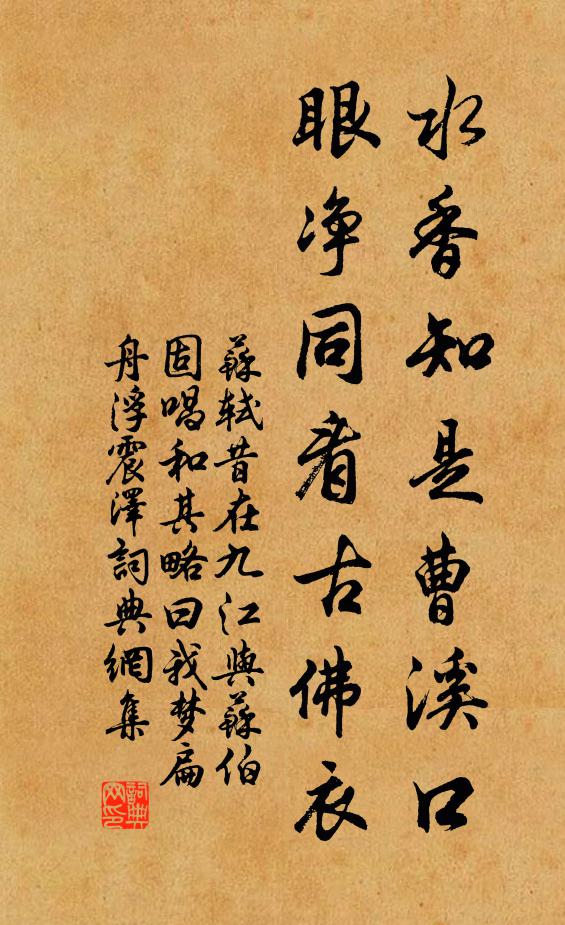 水香知是曹溪口
眼净同看古佛衣
蘇軾昔在九江與蘇伯
固唱和其略曰我梦扁
舟浮震澤詞典網集
詞典
网印